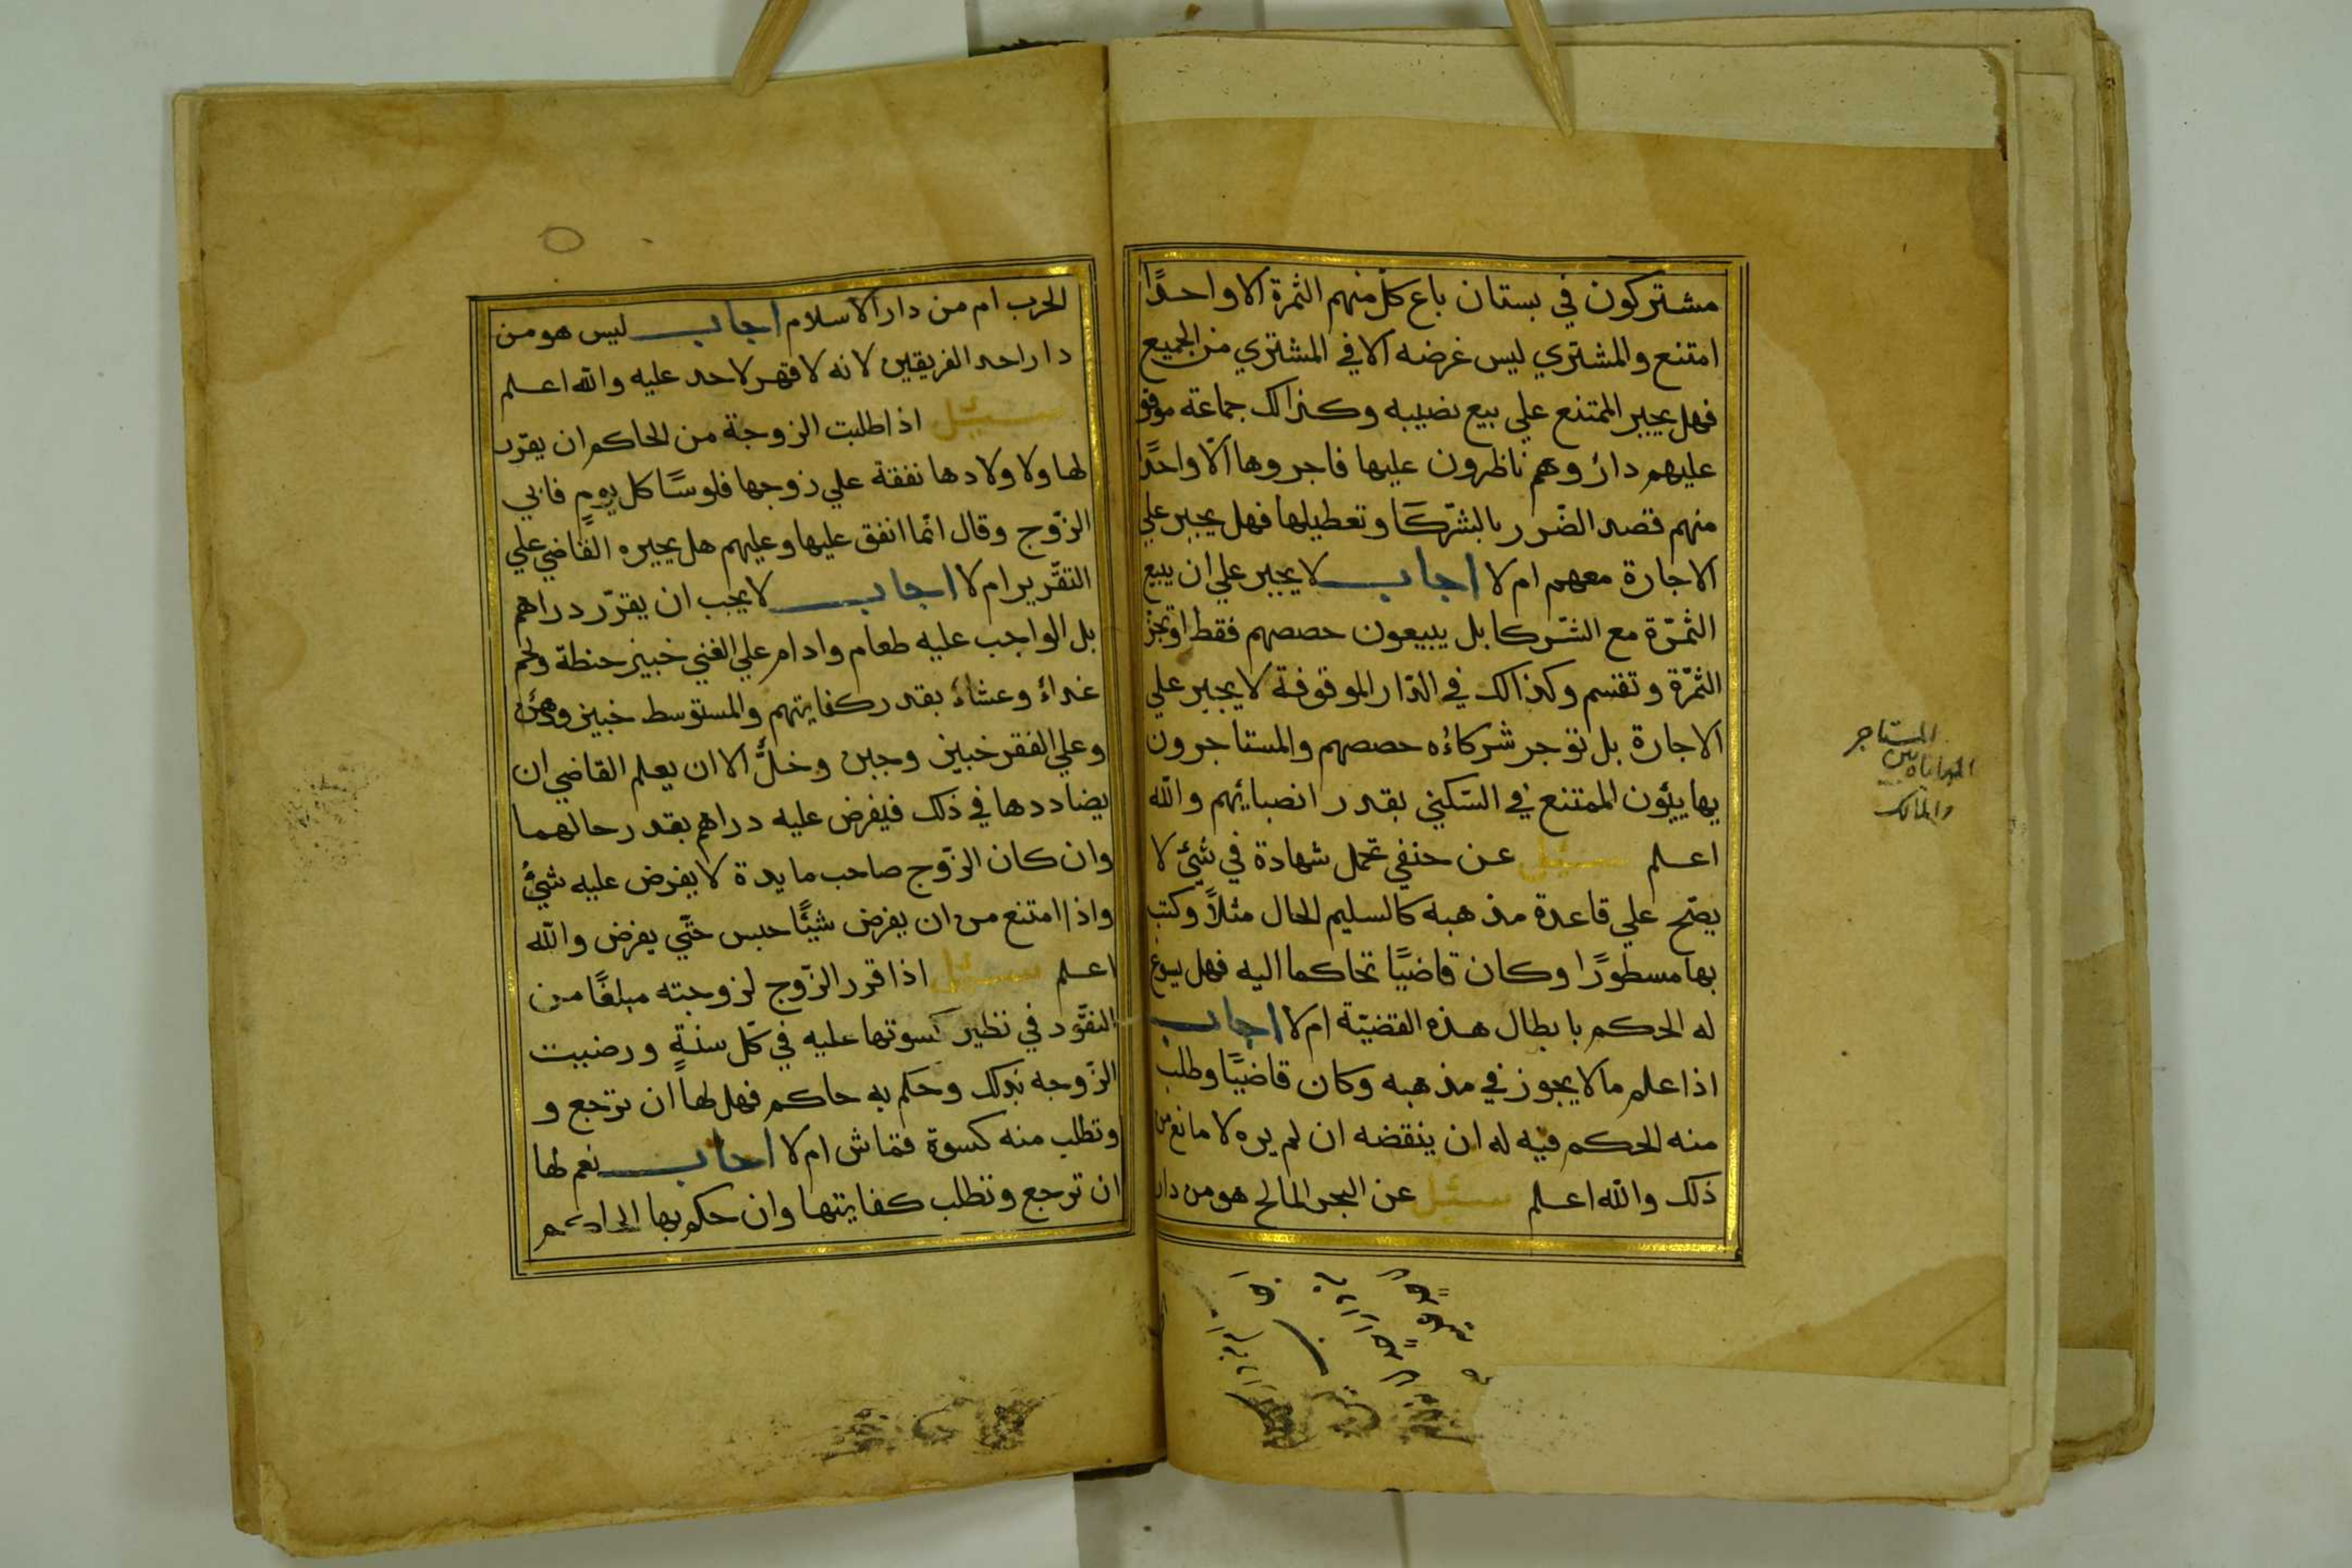 مشتركون في بستان باع كلّ منهم الثمرة الا واحدًا
امتنع والمشتري ليس غرضه الا في المشتري من الجميع
فهل يجبر الممتنع علي بيع نصيبه وكذالك جماعة موقوف
عليهم دارٌ وهم ناظرون عليها فاجروها الّا واحدًا
منهم قصد الضّرر بالشّركا وتعطيلها فهل يجبر علي
الاجارة معهم ام لا اجاب لا يجبر علي ان يبيع
الثمّرة مع الشّركا بل يبيعون حصصهم فقط او تجز
الثمّرة وتقسم وكذالك في الدّار الموقوفة لا يجبر علي
الاجارة بل توجر شركاءُه حصصهم والمستاجرون
يهاييؤن الممتنع في السّكني بقدر انصبائهم والله
اعلم سئيل عن حنفي تحمل شهادة في شئ لا
يصّح علي قاعدة مذهبه كالسليم الحال مثلاً وكتب
بها مسطورًا وكان قاضيًا تحاكما اليه فهل يسوغ
له الحكم بابطال هذه القضيّة ام لا اجاب
اذا علم ما لا يجوز في مذهبه وكان قاضيًا وطلب
منه الحكم فيه له ان ينقضه ان لم يره لا مانع من
ذلك والله اعلم سئيل عن البحر المالح هو من دار
المستاجر
المهاياة بين
والمالك
الحرب ام من دار الاسلام اجاب ليس هو من
دار احد الفريقين لانه لا قهر لاحد عليه والله اعلم
سئيل اذا طلبت الزوجة من الحاكم ان يقرّر
لها ولاولادها نفقة علي زوجها فلوسًا كل يوم فابي
الزّوج وقال انّما انفق عليها وعليهم هل يجبره القاضي علي
التقّرير ام لا اجاب لا يجب ان يقرّر دراهم
بل الواجب عليه طعام وادام علي الغني خبيز حنطة ولحم
غداءُ وعشاءُ بقدر كفايتهم والمستوسط خبيز ودهن
وعلي الفقر خبيز وجبن وخلُّ الا ان يعلم القاضي ان
يضاددها في ذلك فيفرض عليه دراهم بقدر حالهما
وان كان الزّوج صاحب مايدة لا يفرض عليه شيءُ
واذا امتنع من ان يفرض شيئًا حبس حتّي يفرض والله
اعلم سئيل اذا قرر الزّوج لزوجته مبلغًا من
النقّود في نظير كسوتها عليه في كلّ سنةٍ ورضيت
الزّوجه بذلك وحكم به حاكم فهل لها ان ترجع و
وتطلب منه كسوة قماش ام لا اجاب نعم لها
ان ترجع وتطلب كفايتها وان حكم بها